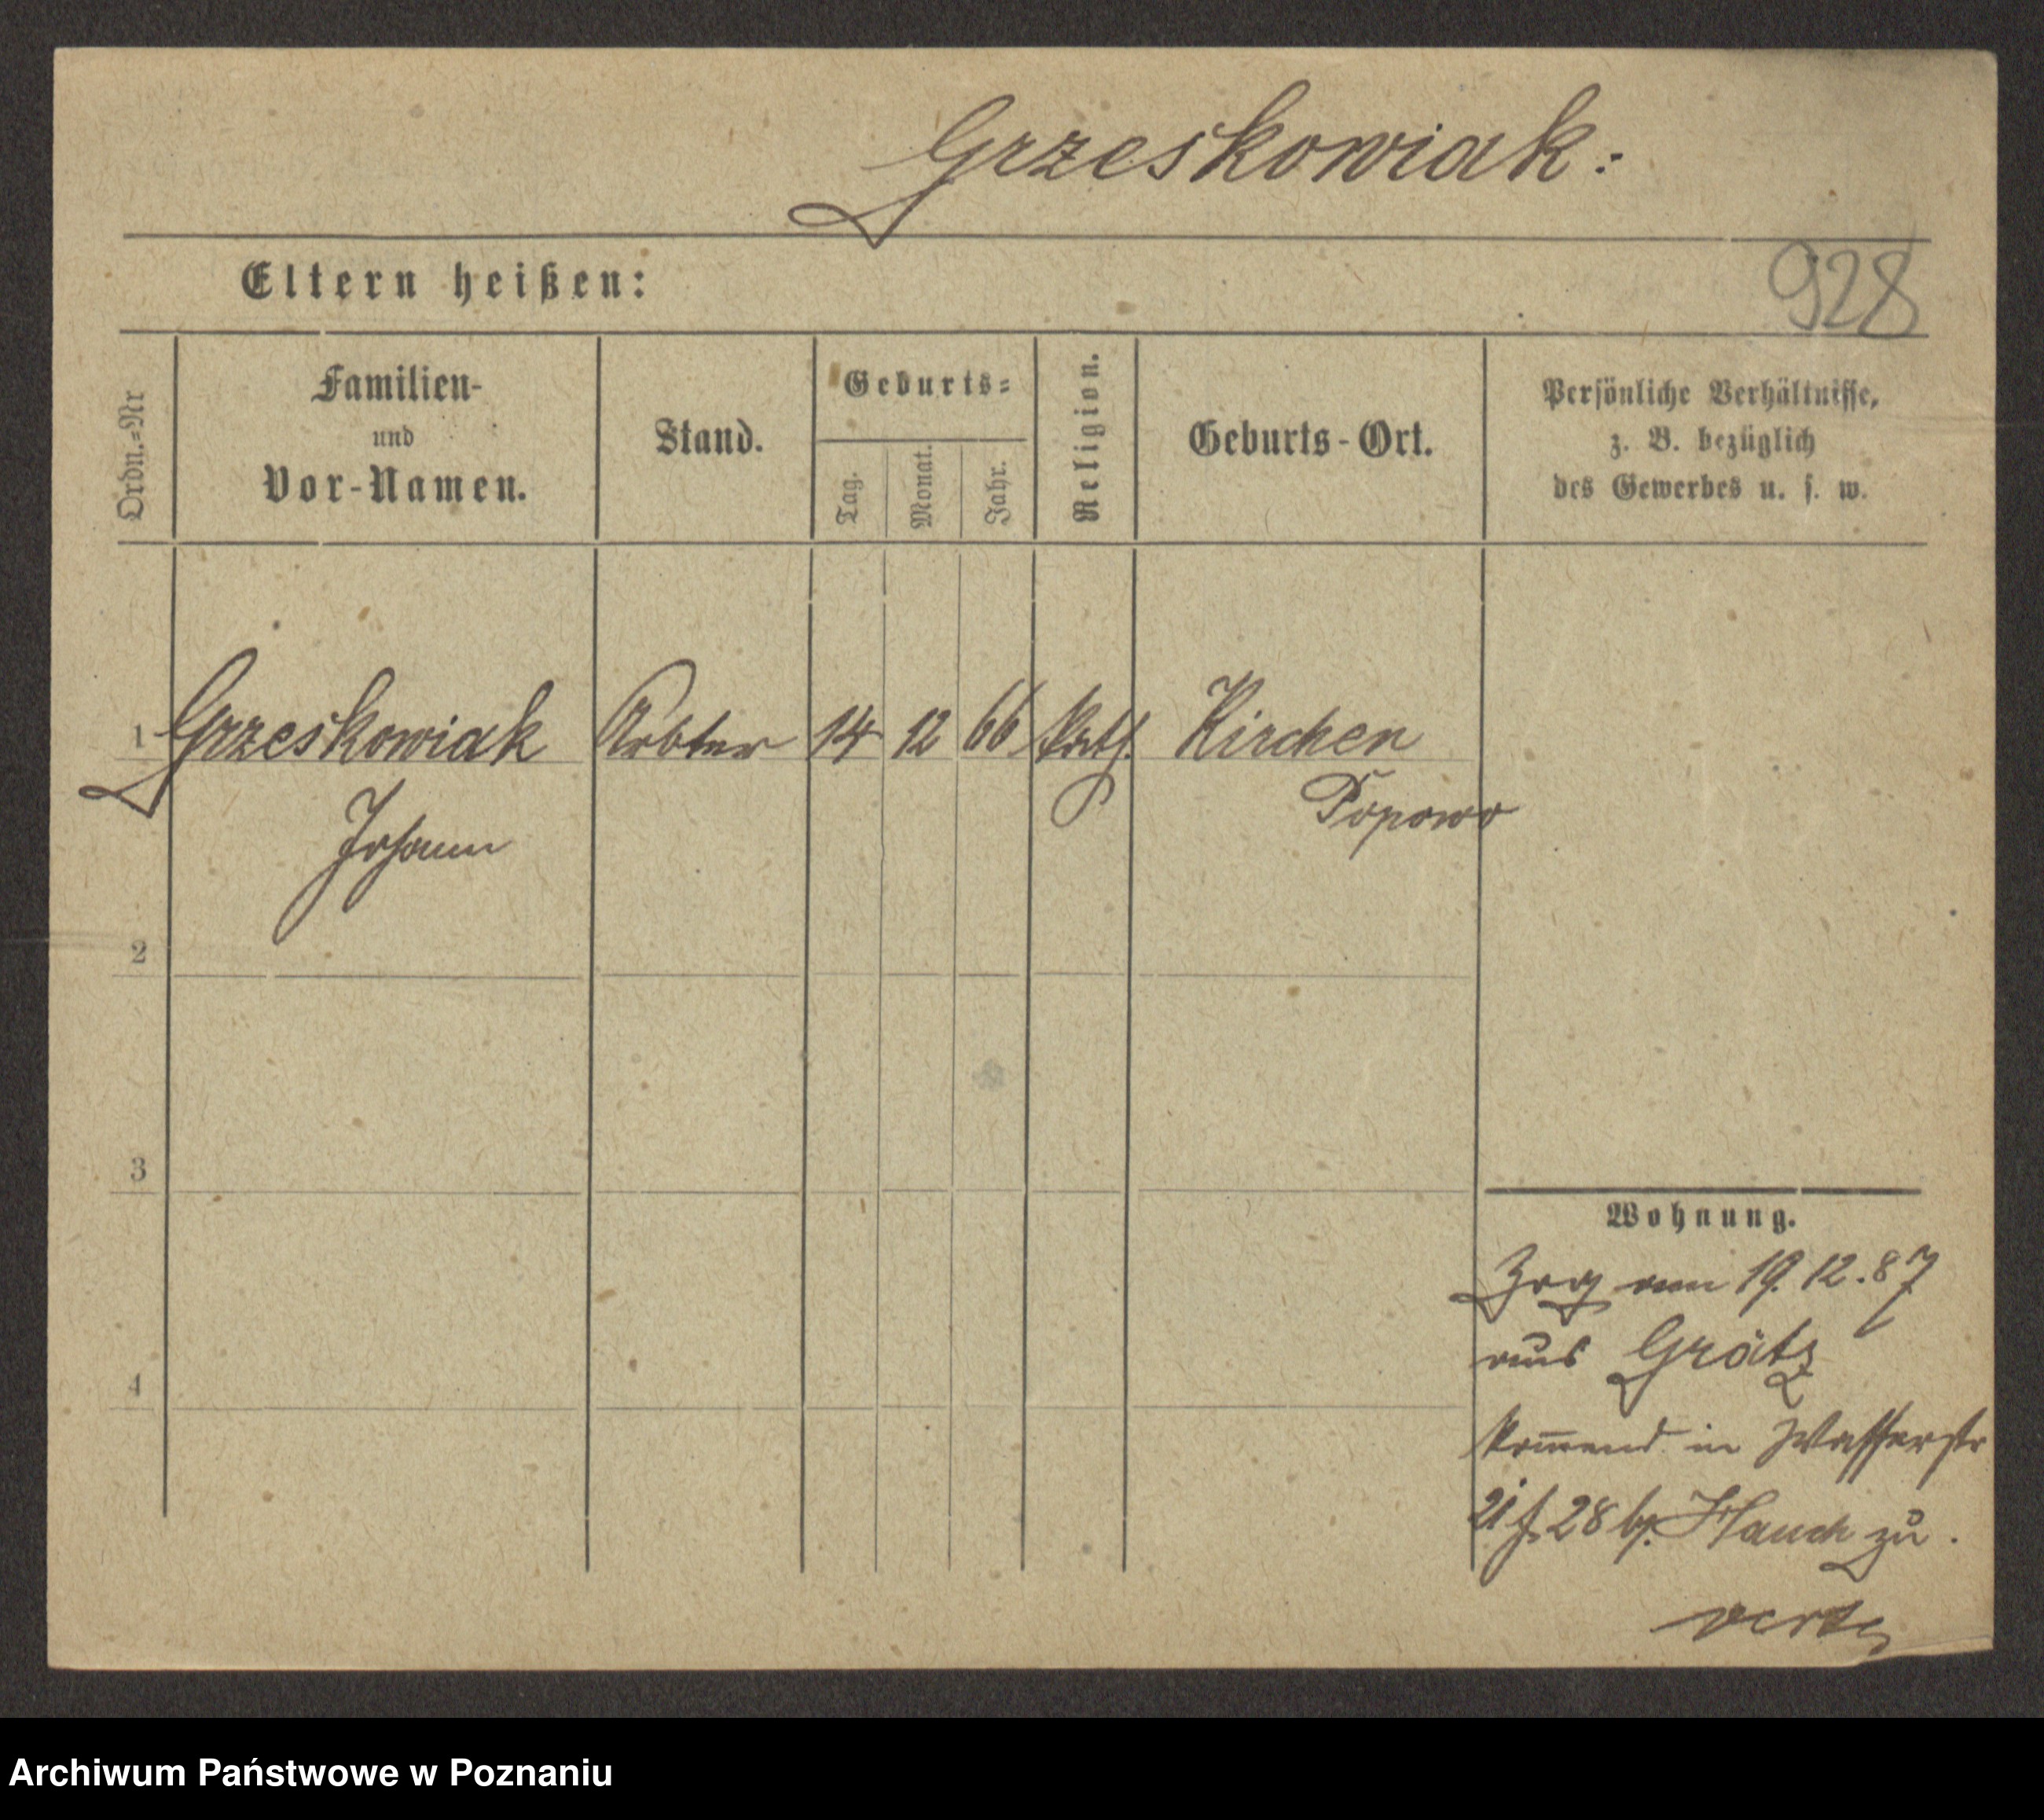 Grzeskowiak:
Eltern heißen:
928
Ordn.=Nr
Familien-
und
Vor-Namen.
Stand.
Geburts=
Tag.
Monat.
Jahr.
Religion.
Geburts-Ort.
Persönliche Verhältnisse,
z. B. bezüglich
des Gewerbes u. s. w.
1 Grzeskowiak Arbter 14 12 66 kath. Kirchen
Johann Popowo
2
3
4
Wohnung.
Zog am 19. 12. 87
aus Grätz
kom̅end in Wasserstr
28 b. Hauch zu.
verte
Archiwum Państwowe w Poznaniu